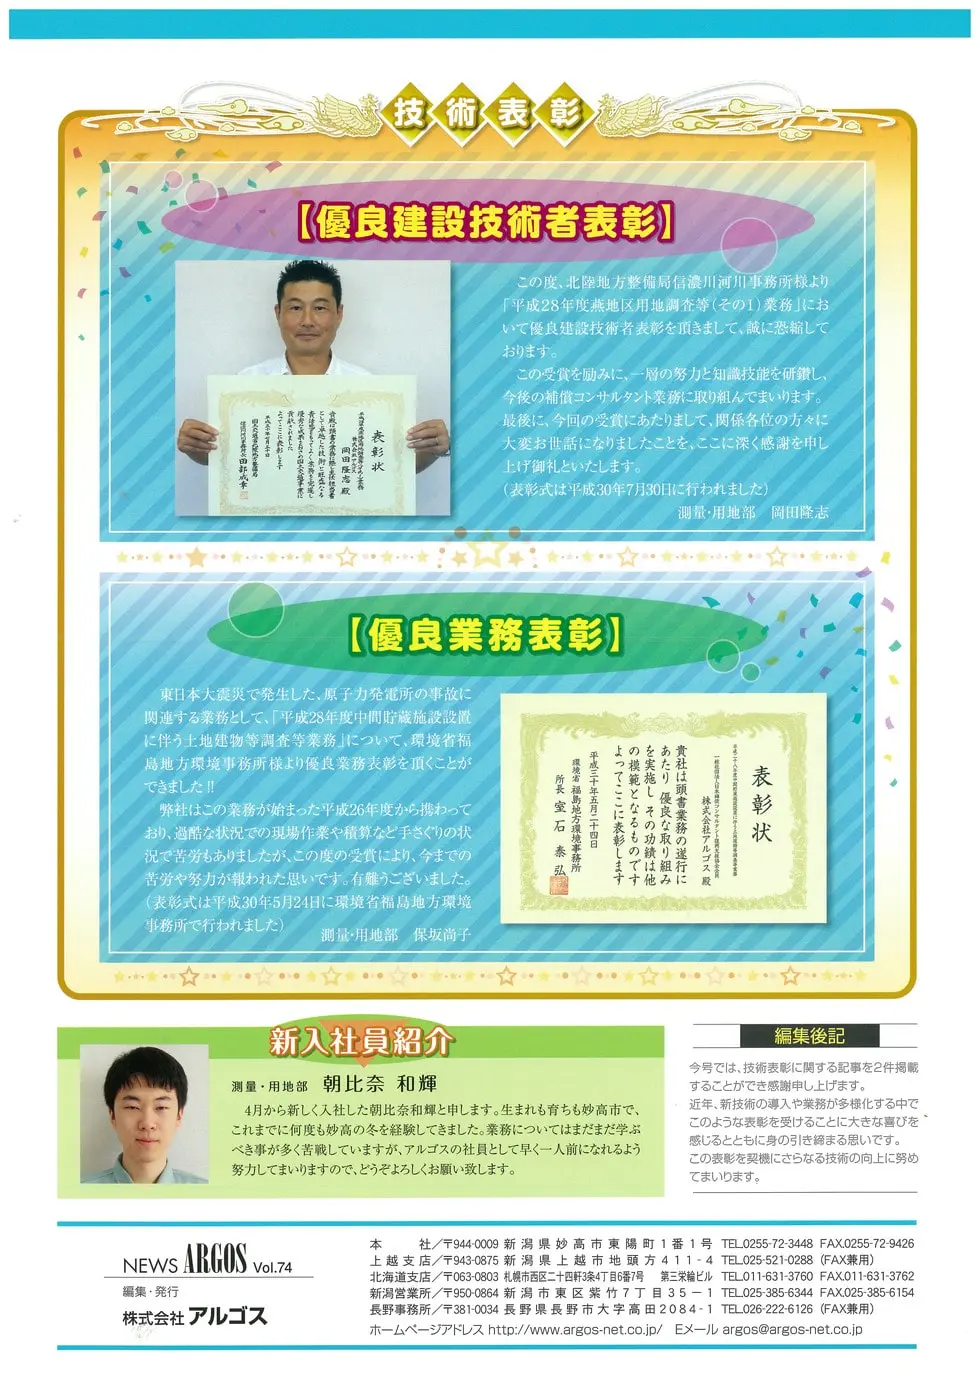 技術表彰
【優良建設技術者表彰】
この度、北陸地方整備局信濃川河川事務所様より
「平成28年度燕地区用地調査等(その1)業務」にお
いて優良建設技術者表彰を頂きまして、誠に恐縮して
おります。
この受賞を励みに、一層の努力と知識技能を研鑽し、
今後の補償コンサルタント業務に取り組んでまいります。
最後に、今回の受賞にあたりまして、関係各位の方々に
大変お世話になりましたことを、ここに深く感謝を申し
上げ御礼といたします。
(表彰式は平成30年7月30日に行われました)
測量・用地部 岡田隆志
表彰状
岡田隆志 殿
【優良業務表彰】
東日本大震災で発生した、原子力発電所の事故に
関連する業務として、「平成28年度中間貯蔵施設設置
に伴う土地建物等調査等業務」について、環境省福
島地方環境事務所様より優良業務表彰を頂くことが
できました!!
弊社はこの業務が始まった平成26年度から携わって
おり、過酷な状況での現場作業や積算など手さぐりの状
況で苦労もありましたが、この度の受賞により、今までの
苦労や努力が報われた思いです。有難うございました。
(表彰式は平成30年5月24日に環境省福島地方環境
事務所で行われました)
測量・用地部 保坂尚子
表彰状
株式会社アルゴス 殿
貴社は頭書業務の遂行に
あたり 優良な取り組み
を実施し その功績は他
の模範となるものです
よってここに表彰します
平成三十年五月二十四日
環境省 福島地方環境事務所
所長 室石泰弘
新入社員紹介
測量・用地部 朝比奈 和輝
4月から新しく入社した朝比奈和輝と申します。生まれも育ちも妙高市で、
これまでに何度も妙高の冬を経験してきました。業務についてはまだまだ学ぶ
べき事が多く苦戦していますが、アルゴスの社員として早く一人前になれるよう
努力してまいりますので、どうぞよろしくお願い致します。
編集後記
今号では、技術表彰に関する記事を2件掲載
することができ感謝申し上げます。
近年、新技術の導入や業務が多様化する中で
このような表彰を受けることに大きな喜びを
感じるとともに身の引き締まる思いです。
この表彰を契機にさらなる技術の向上に努め
てまいります。
NEWS ARGOS Vol.74
編集・発行
株式会社 アルゴス
本社/〒944-0009 新潟県妙高市東陽町1番1号 TEL.0255-72-3448 FAX.0255-72-9426
上越支店/〒943-0875 新潟県上越市地頭方411-4 TEL.025-521-0288 (FAX兼用)
北海道支店/〒063-0803 札幌市西区二十四軒3条4丁目6番7号 第三栄輪ビル TEL.011-631-3760 FAX.011-631-3762
新潟営業所/〒950-0864 新潟市東区紫竹7丁目35-1 TEL.025-385-6344 FAX.025-385-6154
長野事務所/〒381-0034 長野県長野市大字高田2084-1 TEL.026-222-6126 (FAX兼用)
ホームページアドレス http://www.argos-net.co.jp/ Eメール argos@argos-net.co.jp